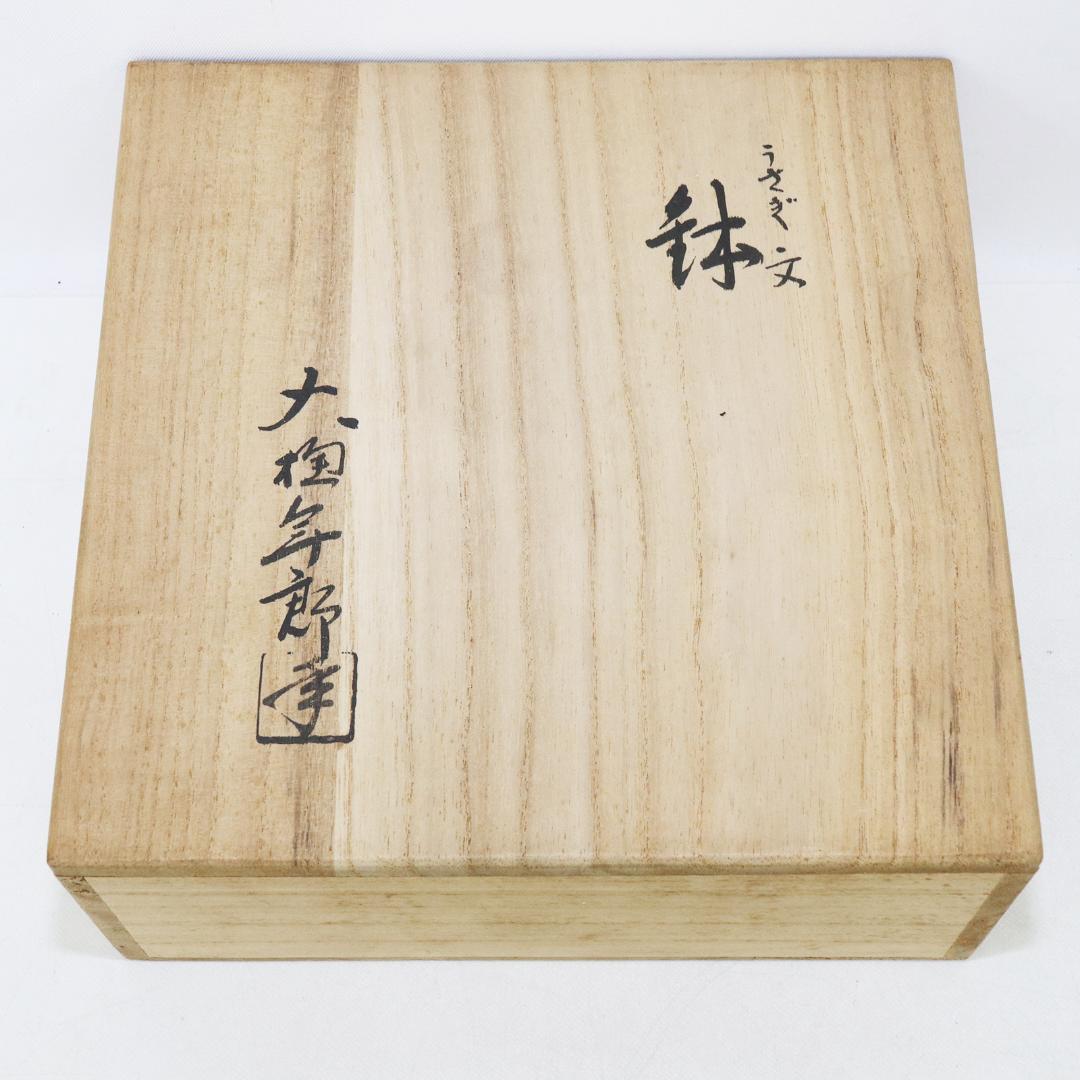 うさぎ文
鉢
大樋年郎
年